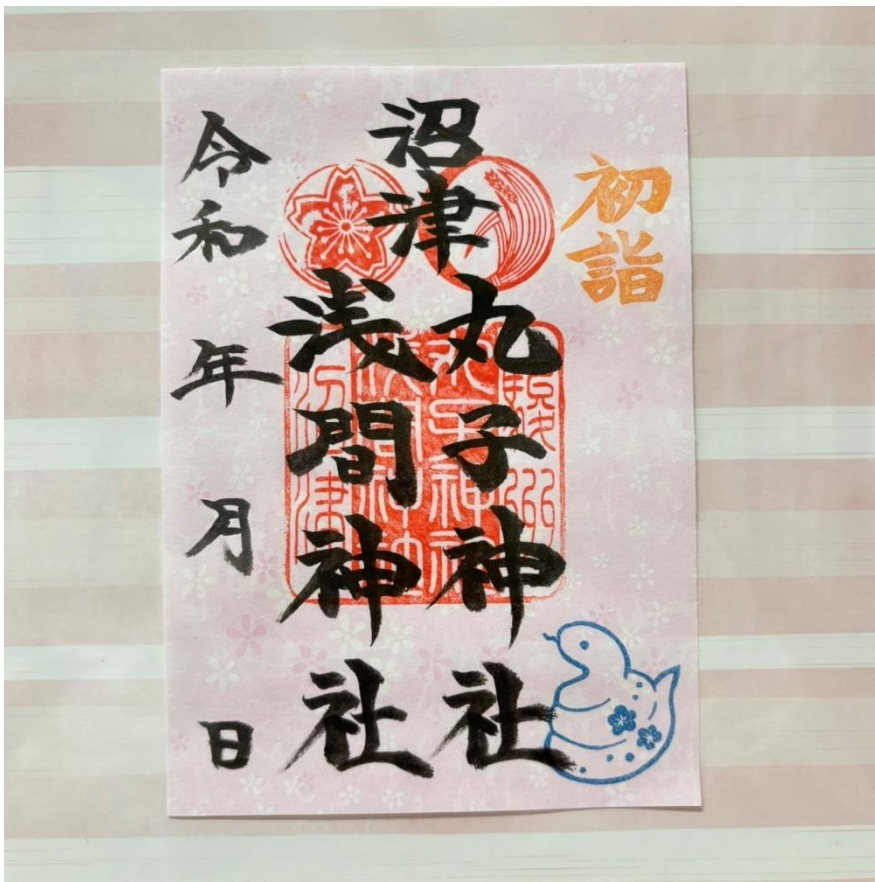 初詣
沼津
丸子神社
浅間神社
令和 年 月 日